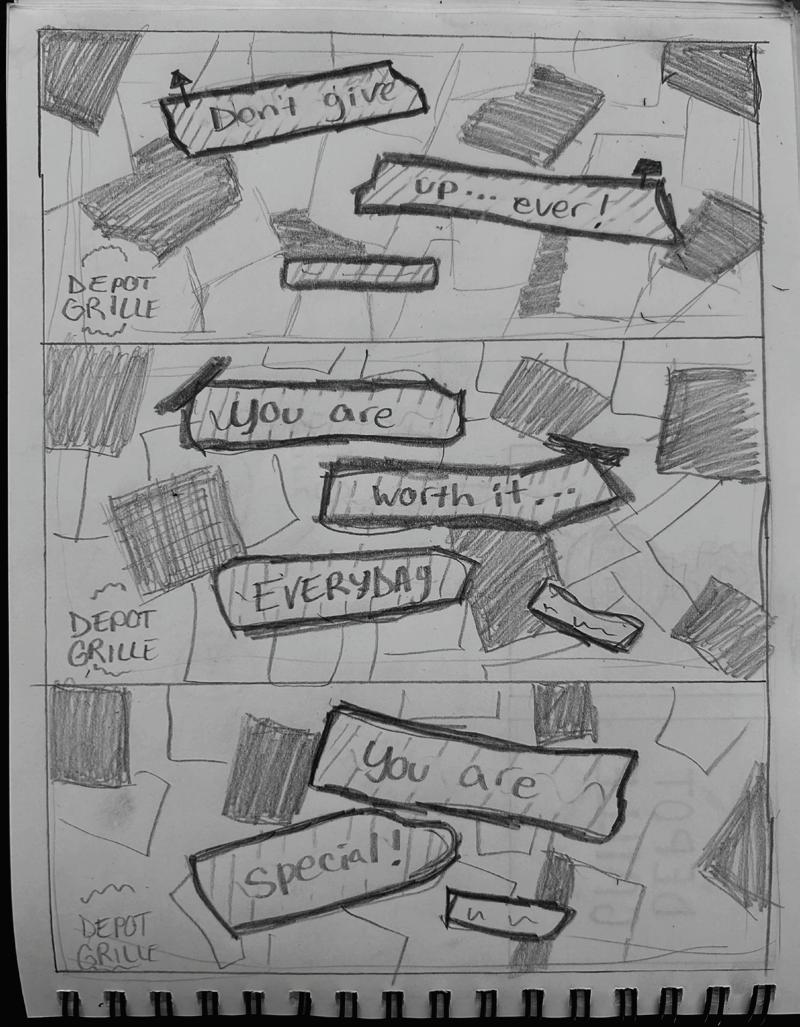 Don't give
up... ever!
DEPOT
GRILLE
You are
worth it...
EVERYDAY
DEPOT
GRILLE
You are
special!
DEPOT
GRILLE